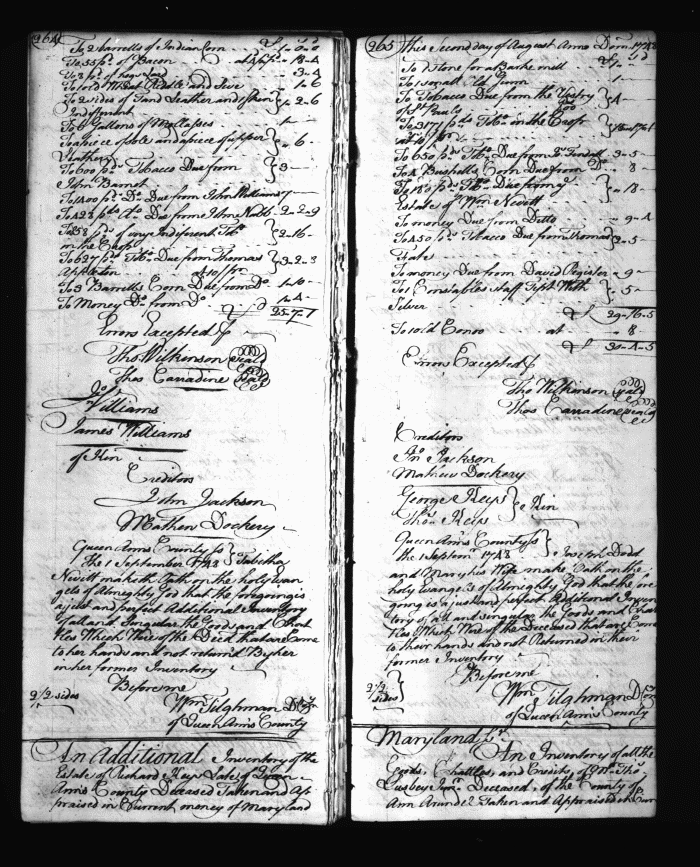 264
To 2 barrells of Indian Corn £1-0-0
To 55 pds. of Bacon at 4d p pd - 18-4
To 8 pd. of hogs Lard - 3-4
To 1 old Wheat Riddle and Sive - 1-6
To 2 sides of Tand Leather and 1 skin 1-2-6
Indifferent
To 6 Gallons of Mollasses
To a piece of sole and a piece of upper - 6-
Leather
To 600 pds. Tobacco Due from 3-
John Barnet
To 1400 pds. Do. Due from John Williams 7-
To 428 pds. Tbo. Due from John Nabb 2-2-9
To 258 pd. of very Indiferent Tob. 2-16-
in the Crop
To 627 pds. Tobo. Due from Thomas 3-2-3
Appleton
To 3 Barrells Corn Due from Do. 1-10-
To Money Do. from Do. 1-4-
£ 25-7-1
Errors Excepted p
Tho Wilkinson seal
Thos Canadine seal
Jo
Williams
James Williams
of Kin
Creditors
John Jackson
Mathew Dockery
Queen Anns County ss
The 1 September 1748 Tabitha
Nevett maketh Oath on the holy Evan
gels of Almighty God that the foregoing is
a just and perfect Additional Inventory
of all and Singular the Goods and Chatt
les Which Were of the Deced that are Come
to her hands and not returnd By her
in her former Inventory
Before me
2 1/2 sides
Wm Tilghman Dty
of Queen Anns County
An Additional Inventory of the
Estate of Richard Keys Late of Queen
Anns County Deceased Taken and Ap
praised in Current money of Maryland
265
this Second day of August Anno Dom 1748
To 1 Stone for a Barke mill
To 1 small Old Gunn 1-
To Tobacco Due from the Vestry 4-
of St Pauls
To 3177 pds. Tobo. in the Crop
To 650 pds. Tbo. Due from 3-5-
To 4 Bushells Corn Due from Do. - 8-
To 180 pds. Tbo. Due from ye - 18-
Estate of Wm Nevett
To money Due from Ditto - 9-4
To 450 pds Tobacco Due from Thomas 2-5-
Tate
To money Due from David Register - 9-
To 1 Constables Staff Tipt With - 5-
Silver
£ 29-16-5
To 1 old Conoo at - 8
£ 30-4-5
Errors Excepted p
Tho Wilkinson seal
Thos Canadine seal
Creditors
Jno Jackson
Mathew Dockery
George Keys Kin
Thos. Keys
Queen Anns County ss
the 1 Septemr. 1748 Joseph Dodd
and Mary his Wife make Oath on the
holy Evangels of Almighty God that the fore
going is a just and perfect Additional Inven
tory of all and singular the Goods and Chatt
les Which Were of the Deceased that are Come
to their hands and not Returned in their
former Inventory
Before me
2 1/2 sides
Wm Tilghman Dty
of Queen Anns County
Maryland ss
An Inventory of all the
Goods, Chattles, and Credits, of Mr. Tho.
Lusbey Junr. Deceased, of the County of
Ann Arundel Taken and Appraised in Curr